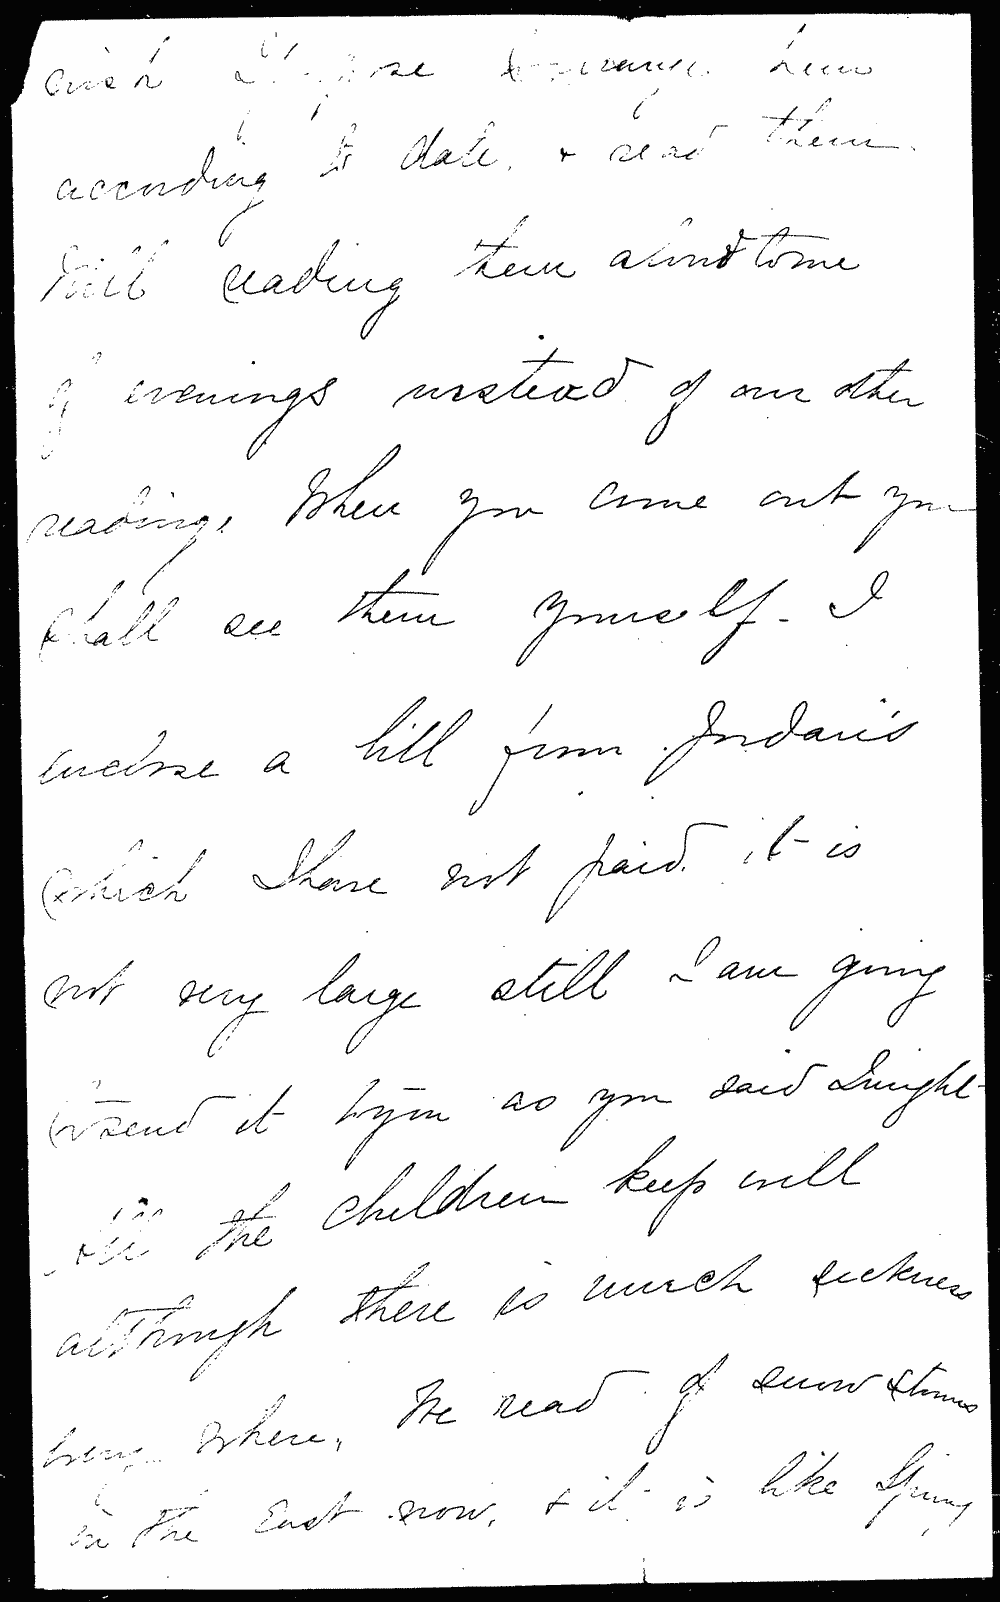 wish I propose to arrange them
according to date, & read them
Will reading them aloud to me
of evenings instead of our other
reading, When you come out you
shall see them yourself - I
enclose a bill from Jordan's
which I have not paid. it is
not very large still I am going
to send it to you as you said I might -
All the children keep well
although there is much sickness
every where, We read of snow storms
in the East now, & it is like Spring